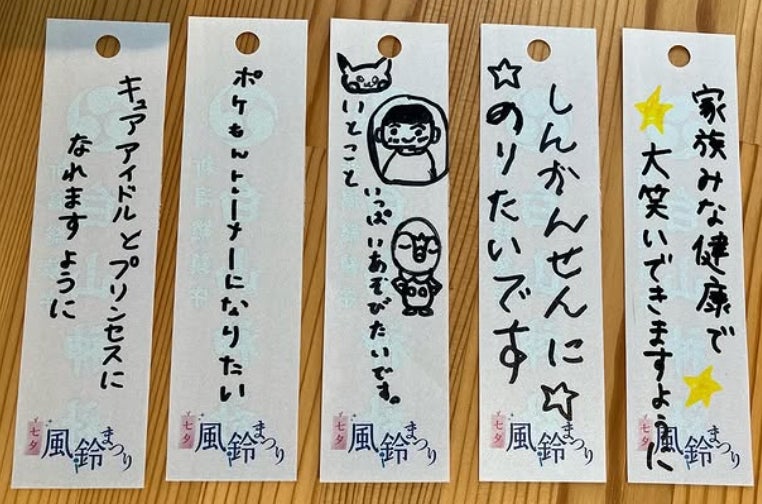 キュアアイドルとプリンセスに
なれますように
七夕
風鈴まつり
ポケもんトレーナーになりたい
七夕
風鈴まつり
いとこと
いっぱいあそびたいです。
七夕
風鈴まつり
しんかんせんに☆
☆のりたいです
七夕
風鈴まつり
家族みな健康で
大笑いできますように
七夕
風鈴まつり